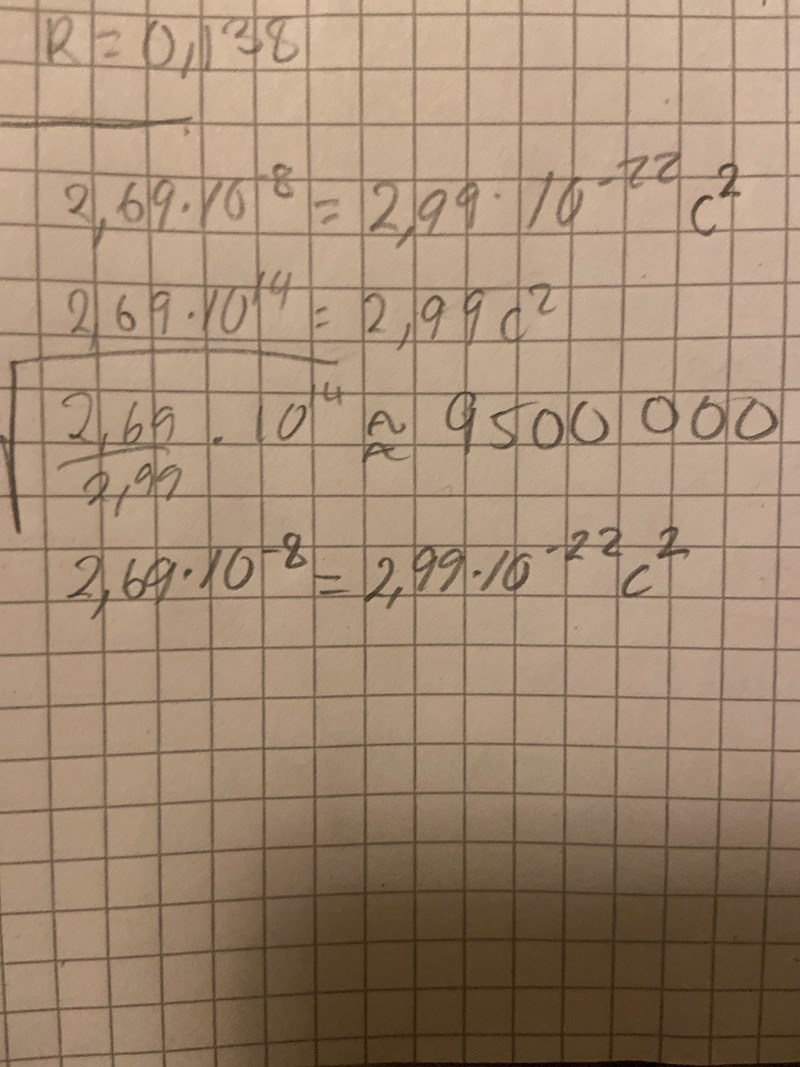 R = 0,138
2,69·10⁻⁸ = 2,99·10⁻²² c²
2,69·10¹⁴ = 2,99 c²
√(2,69/2,99 · 10¹⁴) ≈ 9500 000
2,69·10⁻⁸ = 2,99·10⁻²² c²